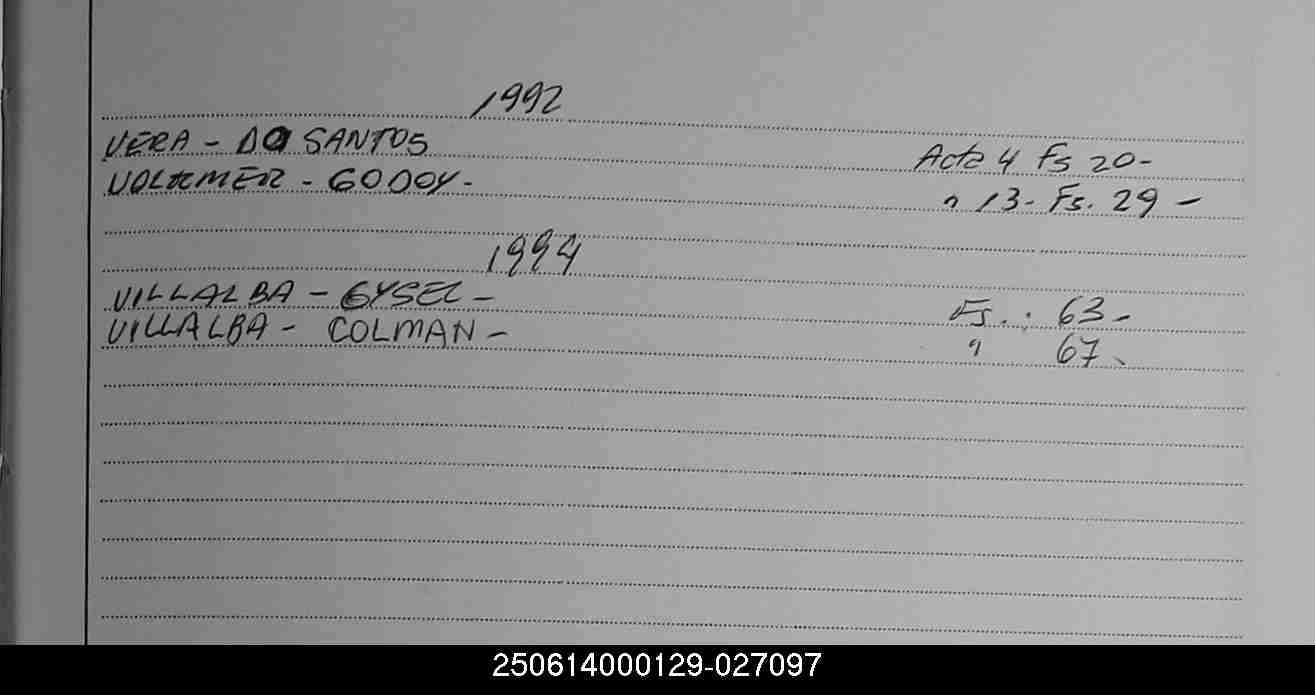 1992
VERA - DA SANTOS Acta 4 Fs 20-
VOLKMER - GODOY - " 13- Fs. 29 -
1994
VILLALBA - GYSEL - Fs. : 63 -
VILLALBA - COLMAN - " 67
250614000129-027097